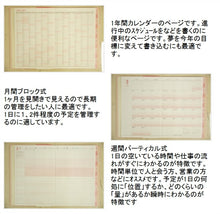 1年間カレンダーのページです。進
行中のスケジュールなどを書くのに
便利なページです。夢を今年の目
標に変えて書き込むにも最適で
す。
月間ブロック式
1ヶ月を見開きで見えるので長期
の管理をしたい人に最適です。
1日に1、2件程度の予定を管理す
るのに適しています。
週間バーティカル式
1日の空いている時間や仕事の流れ
がすぐにわかるのが特徴です。
時間単位で人と会う方、営業の方
などにオススメです。予定が1日の何
処に「位置」するか、どのくらいの
「量」があるか瞬時にわかるのが
特徴です